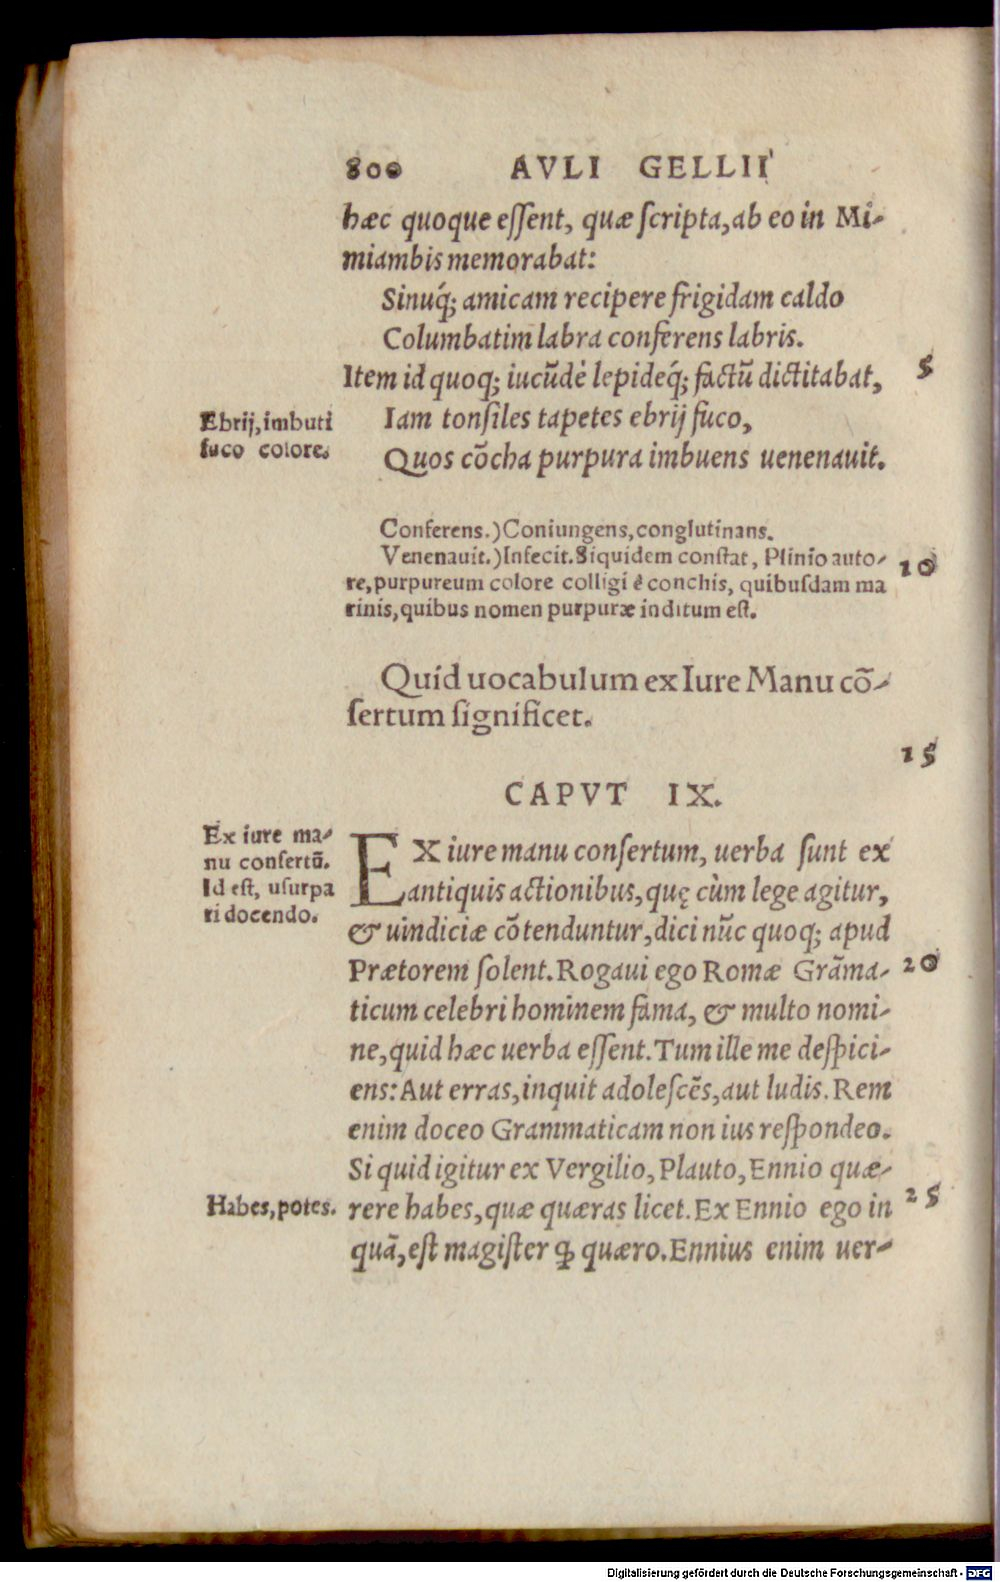 800 AVLI GELLII
hæc quoque essent, quæ scripta, ab eo in Mi-
miambis memorabat:
Sinuq́; amicam recipere frigidam caldo
Columbatim labra conferens labris.
Item id quoq; iucũdè lepideq́; factũ dictitabat, 5
Ebrij, imbuti
fuco colore.
Iam tonsiles tapetes ebrij fuco,
Quos cõcha purpura imbuens uenenauit.
Conferens.) Coniungens, conglutinans.
Venenauit.) Infecit. Siquidem constat, Plinio auto- 10
re, purpureum colore colligi è conchis, quibusdam ma
rinis, quibus nomen purpuræ inditum est.
Quid uocabulum ex Iure Manu cõ-
sertum significet.
15
CAPVT IX.
Ex iure ma-
nu consertũ.
Id est, usurpa
ri docendo.
EX iure manu consertum, uerba sunt ex
antiquis actionibus, quę cùm lege agitur,
& uindiciæ cõtenduntur, dici nũc quoq; apud
Prætorem solent. Rogaui ego Romæ Grãma- 20
ticum celebri hominem fama, & multo nomi-
ne, quid hæc uerba essent. Tum ille me despici-
ens: Aut erras, inquit adolescẽs, aut ludis. Rem
enim doceo Grammaticam non ius respondeo.
Si quid igitur ex Vergilio, Plauto, Ennio quæ-
Habes, potes.
rere habes, quæ quæras licet. Ex Ennio ego in 25
quã, est magister ꝙ quæro. Ennius enim uer-
Digitalisierung gefördert durch die Deutsche Forschungsgemeinschaft - DFG